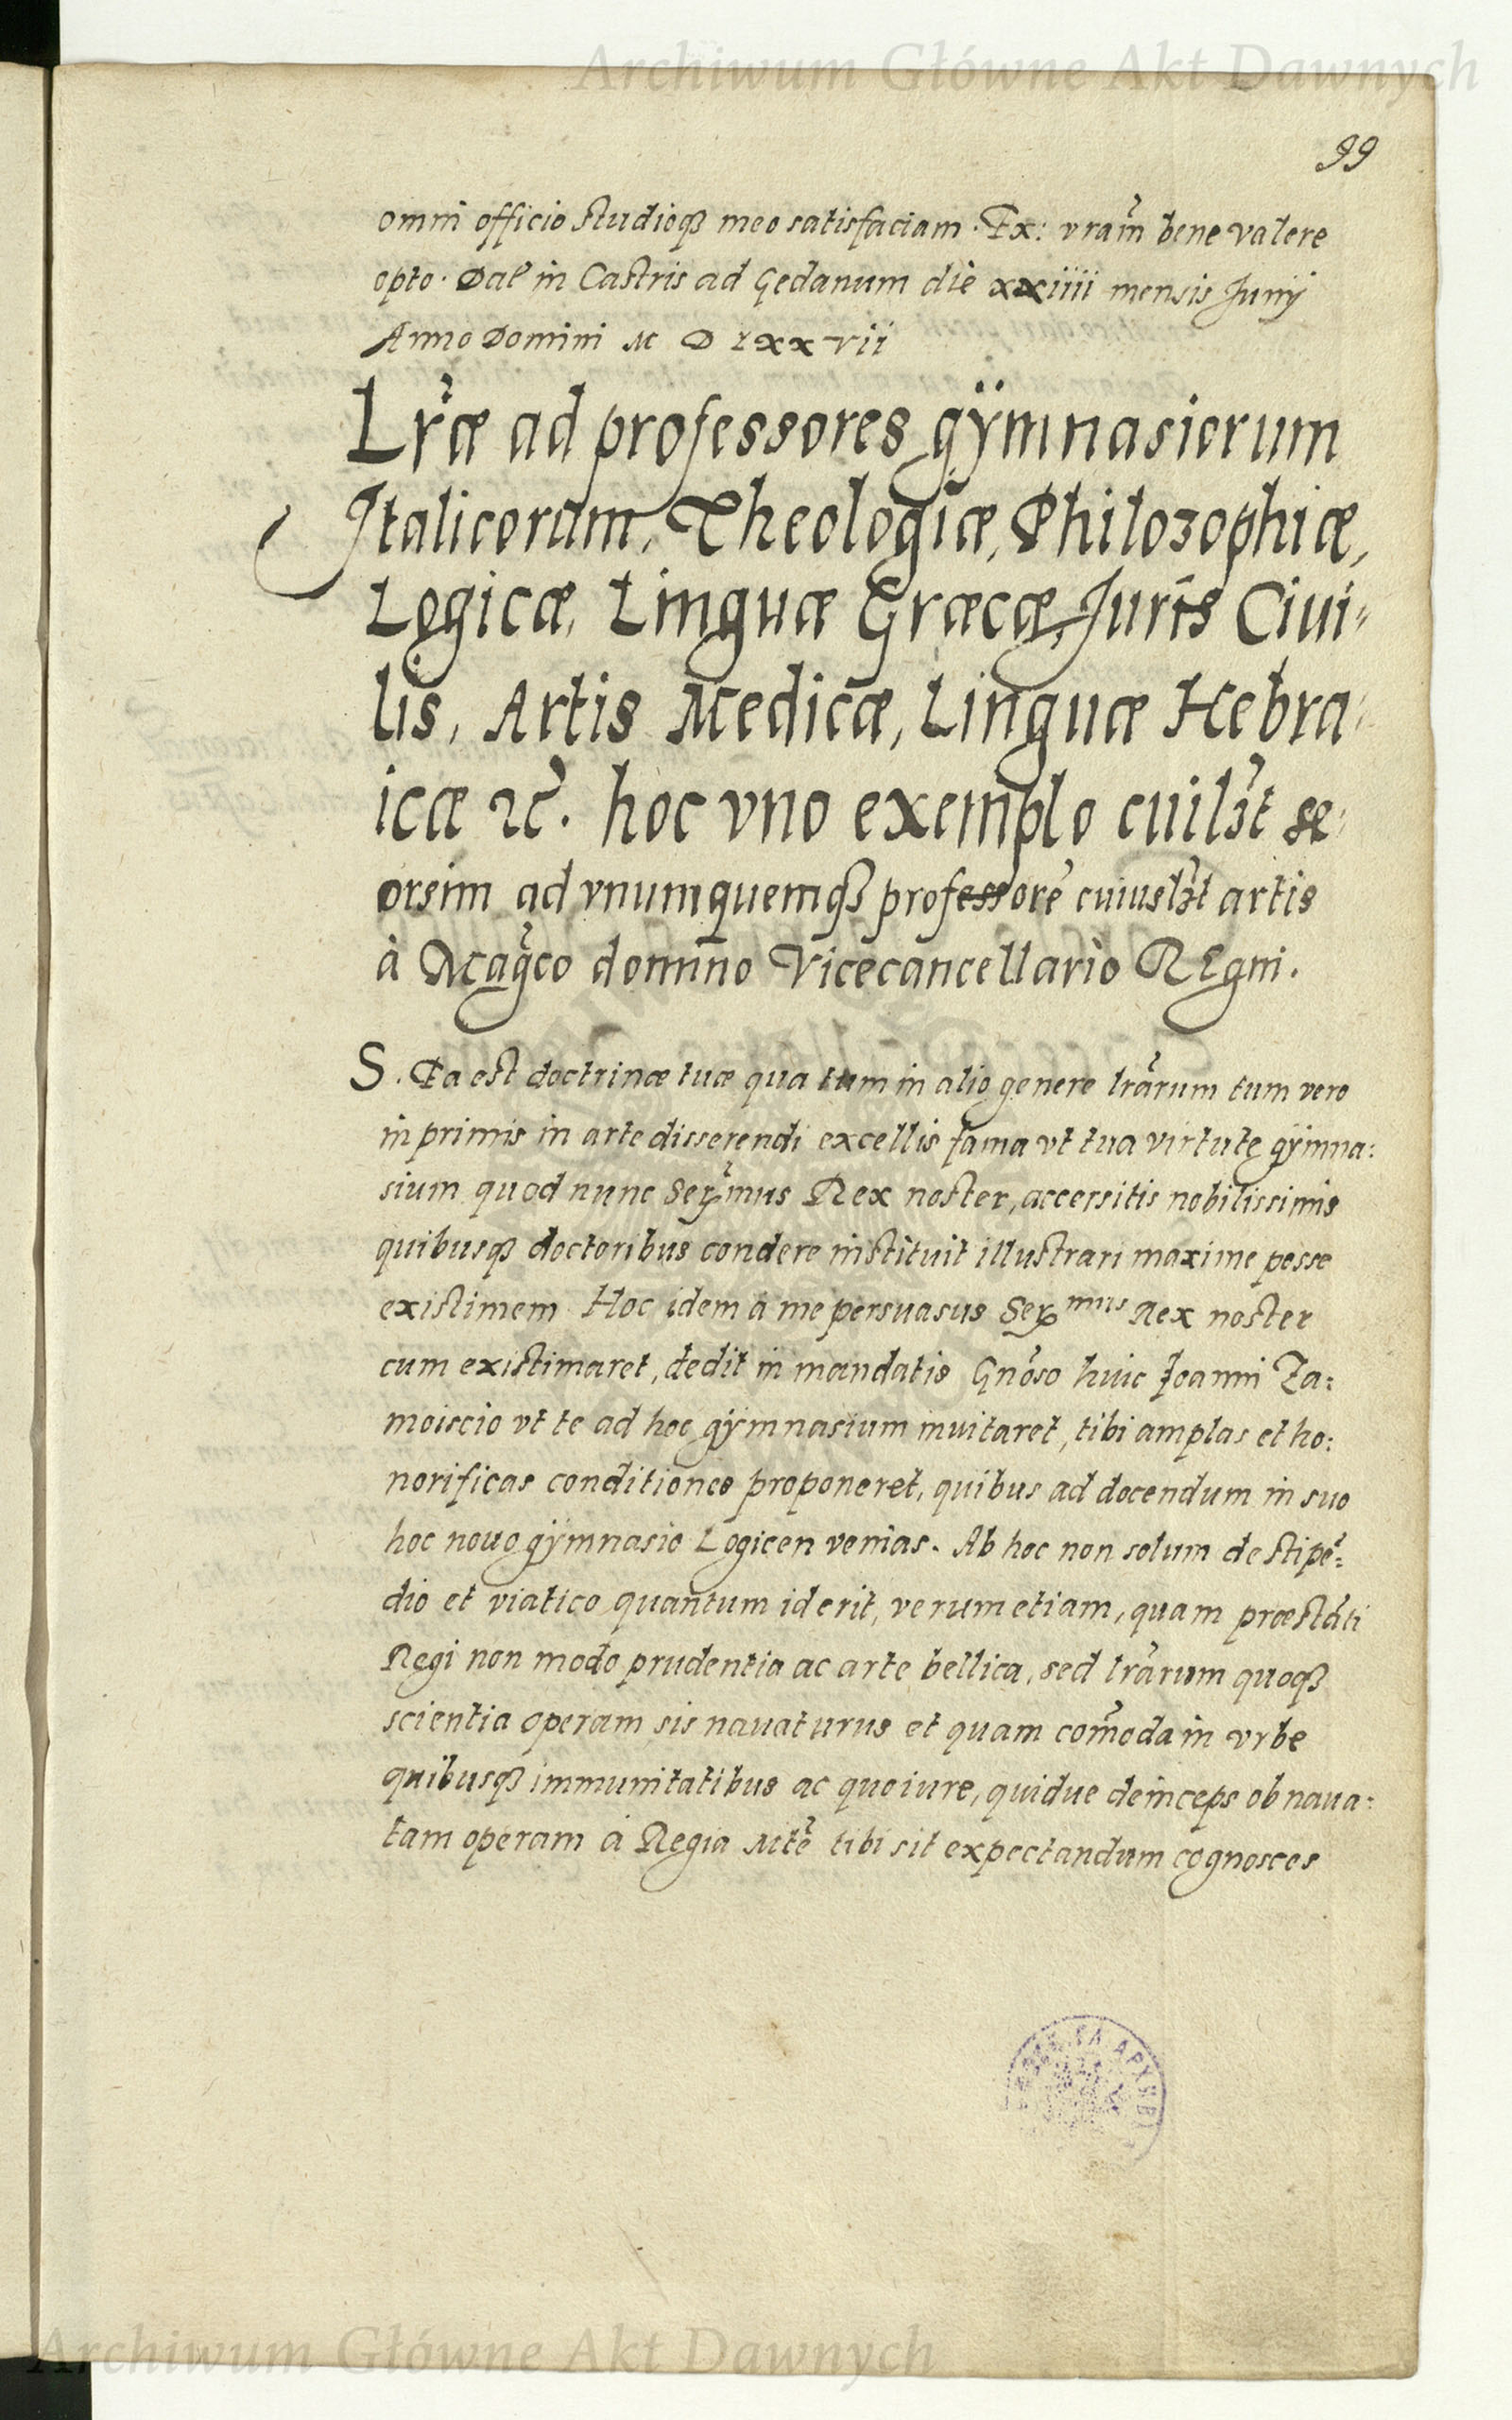 Archiwum Główne Akt Dawnych
99
omni officio studioqꝫ meo satisfaciam. Ex: vram̃ bene valere
opto. Dat in Castris ad Gedanum die xxiiii mensis Junij
Anno Domini M D Lxxvii
Lr̃æ ad professores gÿmnasiorum
Italicorum, Theologiæ, Philosophiæ,
Logicæ, Linguæ Græcæ, Juris Ciui-
lis, Artis Medicæ, Linguæ Hebra-
icæ ꝛc̃. hoc vno exemplo cuilꝫt se-
orsim ad vnumquemqꝫ professorẽ cuiuslꝫt artis
à Mag̃co domino Vicecancellario REgni.
S. Ea est doctrinæ tuæ qua tum in alio genere lr̃arum tum vero
in primis in arte disserendi excellis fama vt tua virtute gÿmna:
sium quod nunc Serꝫmus Rex noster, accersitis nobilissimis
quibusqꝫ doctoribus condere instituit illustrari maxime posse
existimem Hoc idem a me persuasus Ser mus Rex noster
cum existimaret, dedit in mandatis Gnõso huic Joanni Za:
moiscio vt te ad hoc gÿmnasium inuitaret, tibi amplas et ho:
norificas conditiones proponeret, quibus ad docendum in suo
hoc nouo gÿmnasio Logicen venias. Ab hoc non solum de stipẽ=
dio et viatico quantum id erit, verum etiam, quam præstãti
Regi non modo prudentia ac arte bellica, sed lr̃arum quoqꝫ
scientia operam sis nauaturus et quam com̃oda in vrbe
quibusqꝫ immunitatibus ac quo iure, quidue deinceps ob naua:
tam operam à Regia Mtẽ tibi sit expectandum cognosces
Archiwum Główne Akt Dawnych